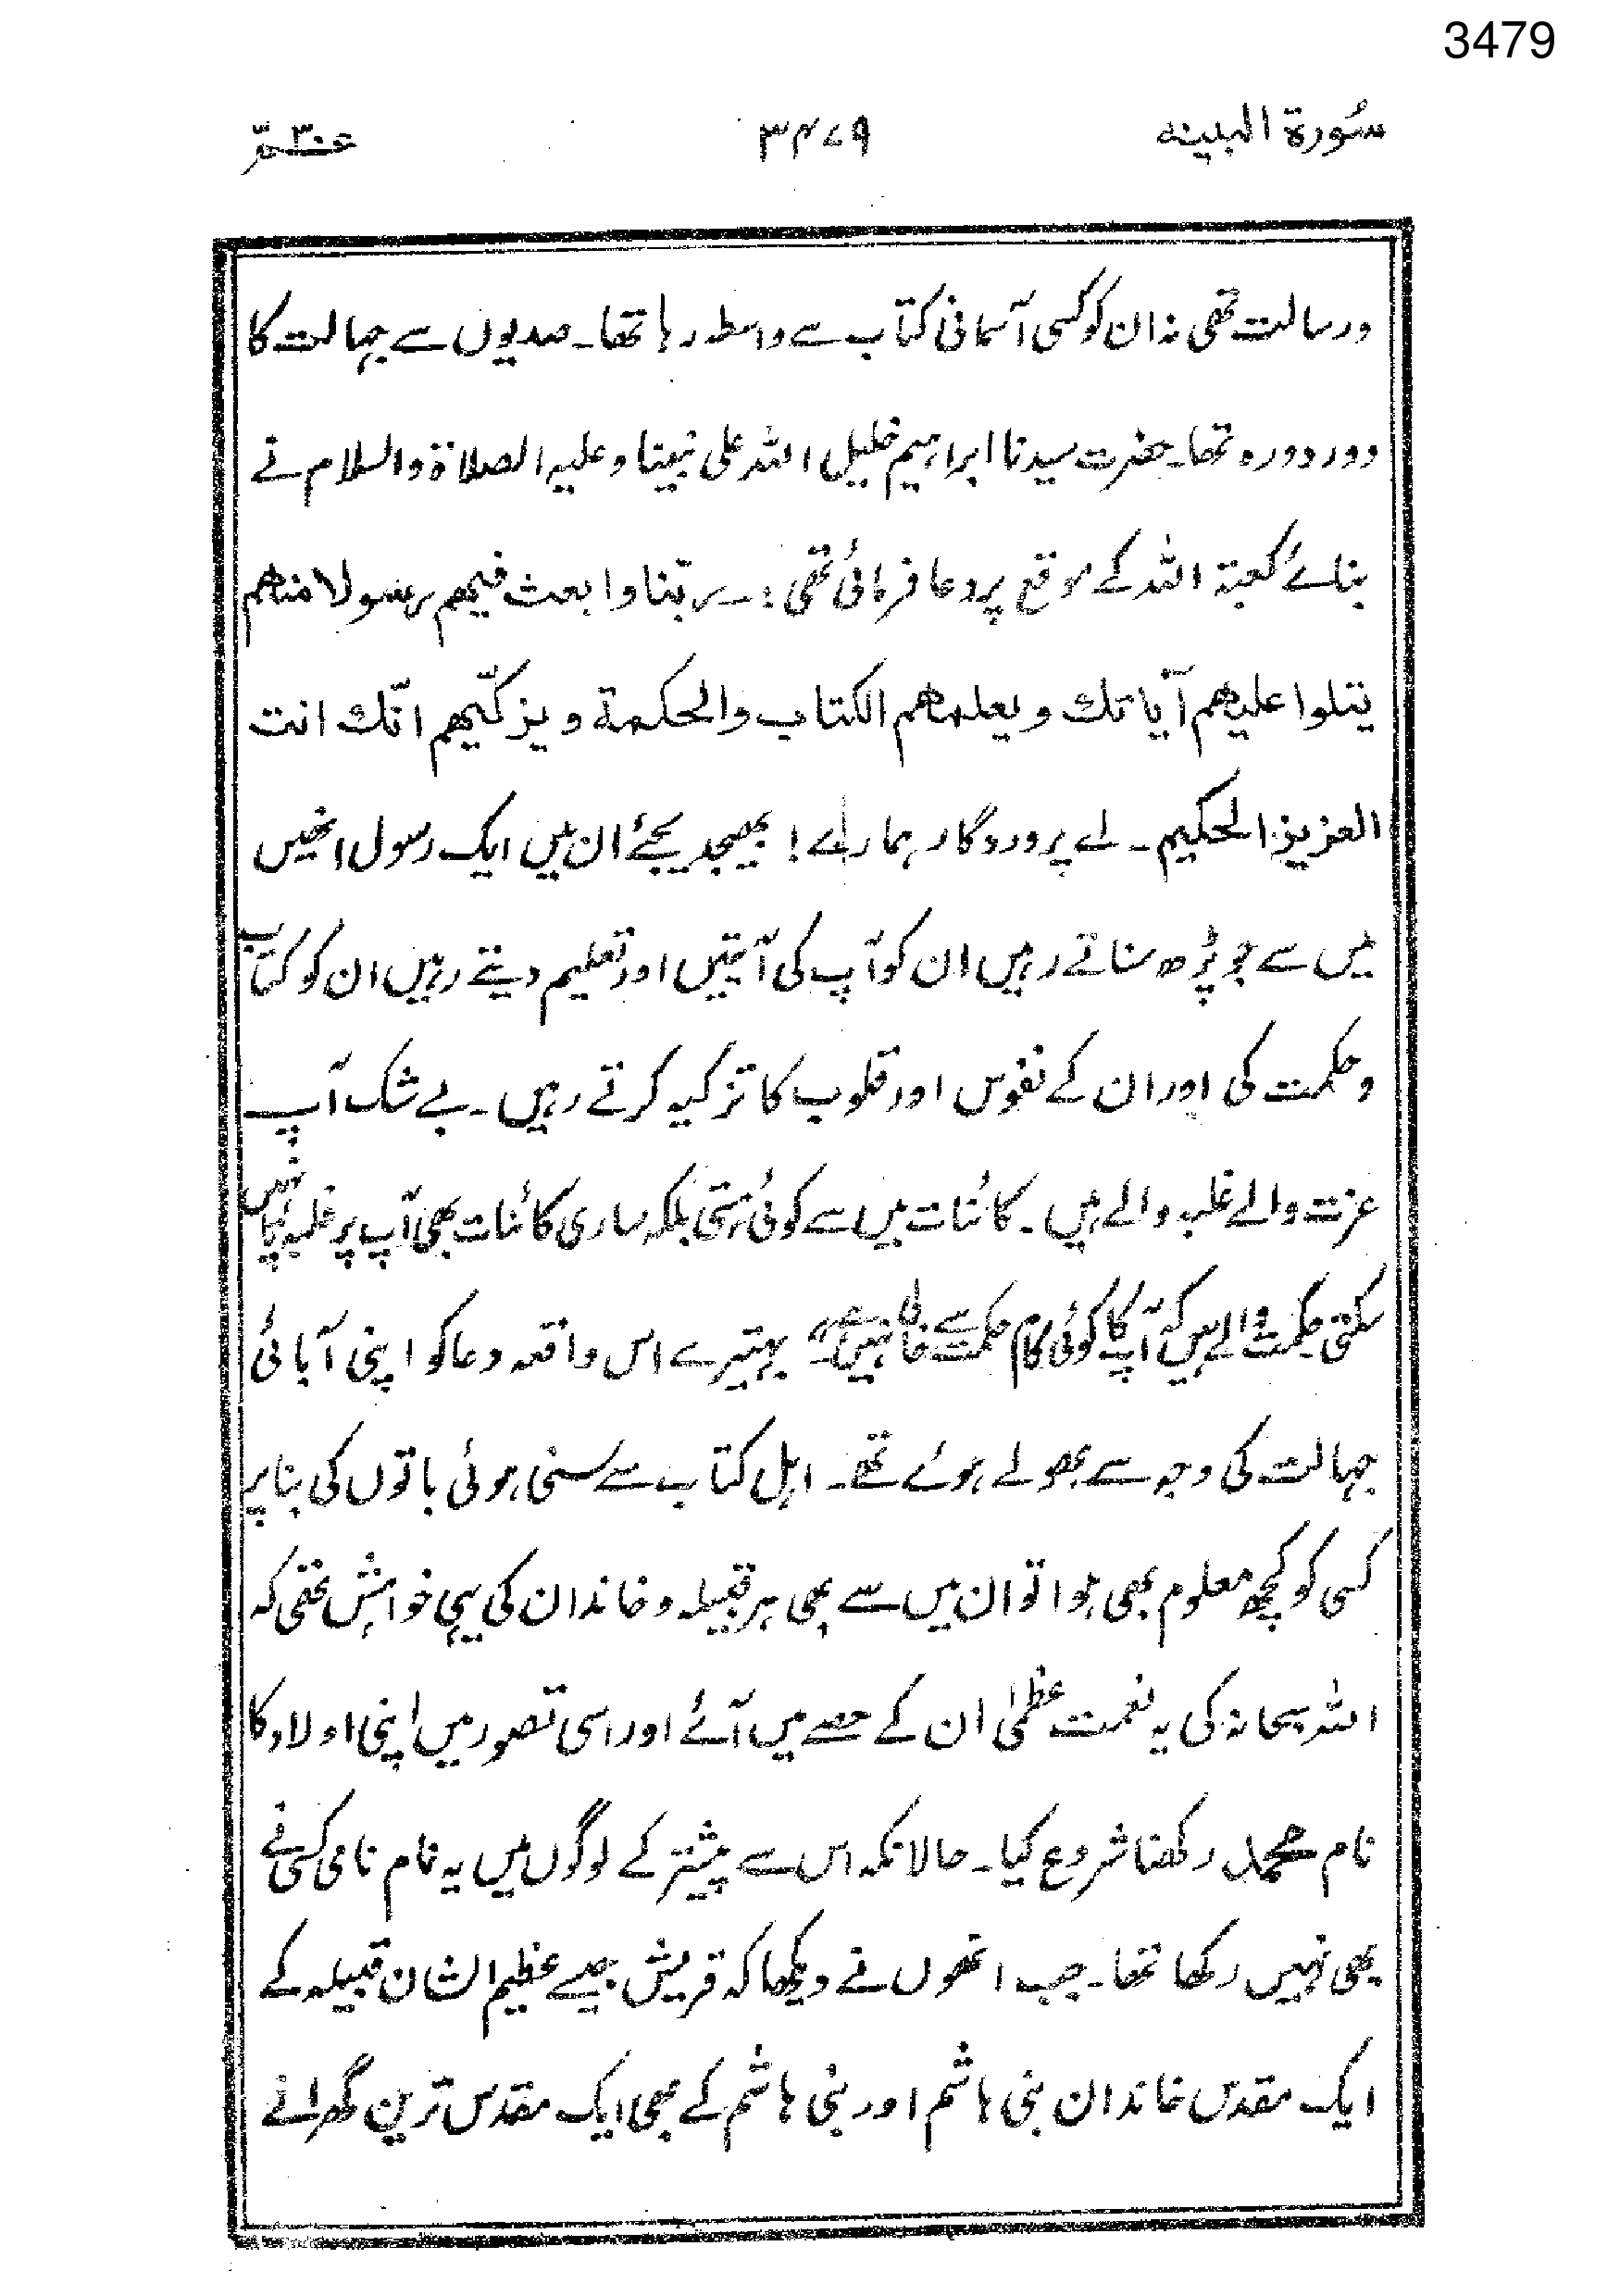 3479
سُورة البینه
۳۴۷۹
عۃ۳۰
و رسالت تھی نہ ان کو کسی آسمانی کتاب سے واسطہ رہا تھا۔ صدیوں سے جہالت کا
دور دورہ تھا۔ حضرت سیدنا ابراہیم خلیل اللہ علی نبینا وعلیہ الصلاۃ والسلام نے
بنائے کعبۃ اللہ کے موقع پر دعا فرمائی تھی :۔ ربّنا وابعث فیہم رسولا منھم
یتلوا علیھم آیاتك ویعلمھم الکتاب والحکمۃ ویزکّیھم انّك انت
العزیز الحکیم۔ اے پروردگار ہمارے! بھیجدیجئے ان میں ایک رسول انھیں
میں سے جو پڑھ سناتے رہیں ان کو آپ کی آیتیں اور تعلیم دیتے رہیں ان کو کتاب
وحکمت کی اور ان کے نفوس اور قلوب کا تزکیہ کرتے رہیں۔ بے شک آپ
عزت والے غلبہ والے ہیں۔ کائنات میں سے کوئی ہستی بلکہ ساری کائنات بھی آپ پر غلبہ پا نہیں
سکتی حکمت والے ہیں کہ آپ کا کوئی کام حکمت سے خالی نہیں ہے۔ بہتیرے اس واقعہ دعا کو اپنی آبائی
جہالت کی وجہ سے بھولے ہوئے تھے۔ اہل کتاب سے سنی ہوئی باتوں کی بنا پر
کسی کو کچھ معلوم بھی ہوا تو ان میں سے بھی ہر قبیلہ و خاندان کی یہی خواہش تھی کہ
اللہ سبحانہ کی یہ نعمت عظمٰی ان کے حصے میں آئے اور اسی تصور میں اپنی اولاد کا
نام محمد رکھنا شروع کیا۔ حالانکہ اس سے پیشتر کے لوگوں میں یہ نام نامی کسی نے
بھی نہیں رکھا تھا۔ جب انھوں نے دیکھا کہ قریش جیسے عظیم الشان قبیلہ کے
ایک مقدس خاندان بنی ہاشم اور بنی ہاشم کے بھی ایک مقدس ترین گھرانے